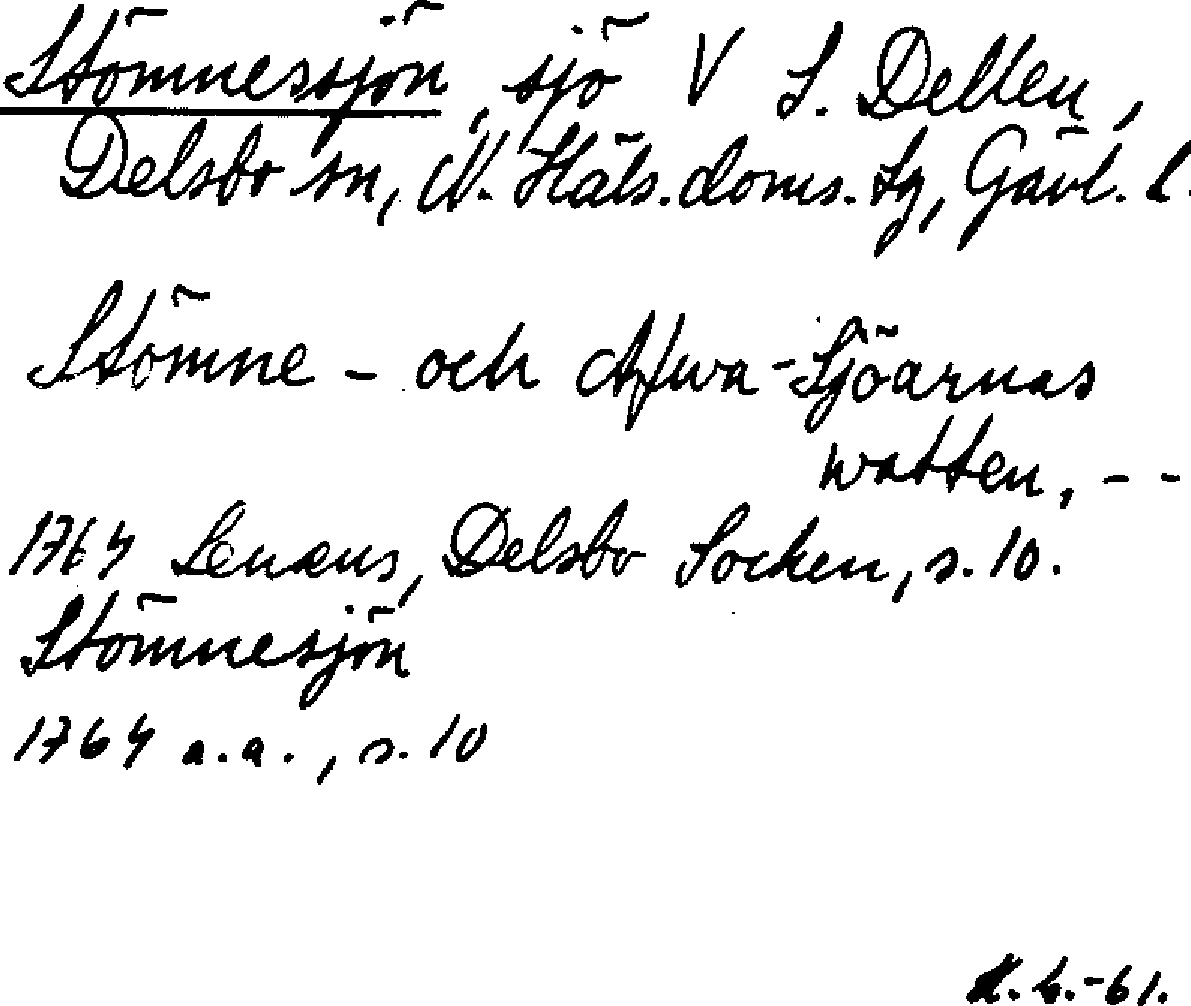 Stömnessjön, sjö V S. Dellen,
Delsbo sn, N. Häls. doms. tg, Gävl. l.
Stömne - och Afwa-Sjöarnas
watten, - -
1764 Lenæus, Delsbo Socken, s. 10.
Stömnesjön
1764 a.a., s. 10
-61.